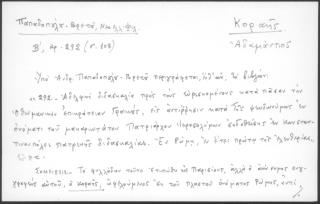 Παπαδοπούλου-Βρετοῦ, Νεοελλ. Φιλ.
Κοραῆς
Β', ἀρ. 292 (σ. 108)
Ἀδαμάντιος
Ὑπὸ Ἀνδρ. Παπαδοπούλου-Βρετοῦ περιγράφεται, τὸ βιβλίον:
"292. Ἀδελφικὴ διδασκαλία πρὸς τοὺς εὑρισκομένους κατὰ πᾶσαν τὴν
Ὀθωμανικὴν ἐπικράτειαν Γραικούς, εἰς ἀντίρρησιν κατὰ τῆς ψευδωνύμως ἐν
ὀνόματι τοῦ μακαριωτάτου Πατριάρχου Ἱεροσολύμων ἐκδοθείσης ἐν Κωνσταν-
τινουπόλει πατρικῆς διδασκαλίας. Ἐν Ῥώμῃ, ἐν ἔτει πρώτῳ τῆς ἐλευθερίας.
Σημείωσις. Τὸ φυλλάδιον τοῦτο ἐτυπώθη ἐν Παρισίοις, ἀλλὰ ὁ ἀνώνυμος συγ-
γραφεὺς αὐτοῦ, ὁ Κοραῆς, ἐκ τοῦ πλαστοῦ ὀνόματος Ῥώμης, ἀντὶ